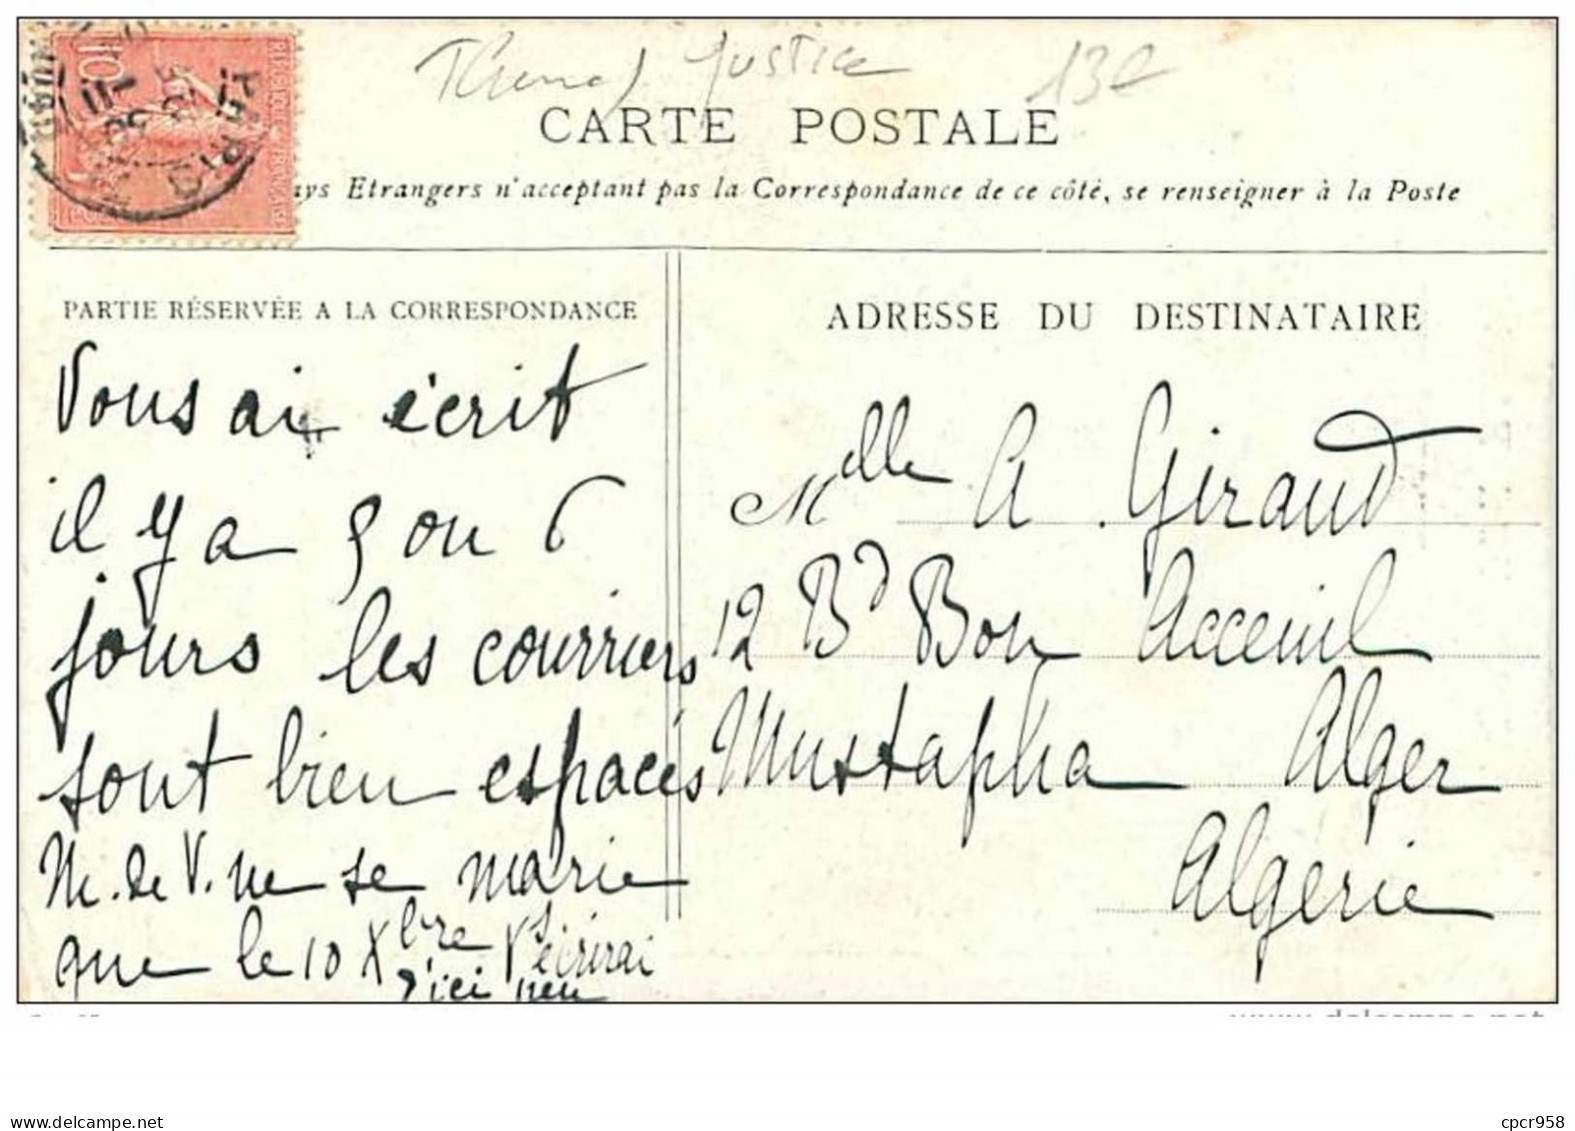 Justice 13e
CARTE POSTALE
ays Etrangers n'acceptant pas la Correspondance de ce côté, se renseigner à la Poste
PARTIE RÉSERVÉE A LA CORRESPONDANCE
Vous ai écrit
il y a 5 ou 6
jours les courriers
sont bien espacés
M. de V. ne se marie
que le 10 Xbre Vs écrirai
d'ici peu
ADRESSE DU DESTINATAIRE
Melle A. Giraud
12 Bd Bon Acceuil
Mustapha Alger
Algérie
10
PARIS
www.delcampe.net
cpcr958